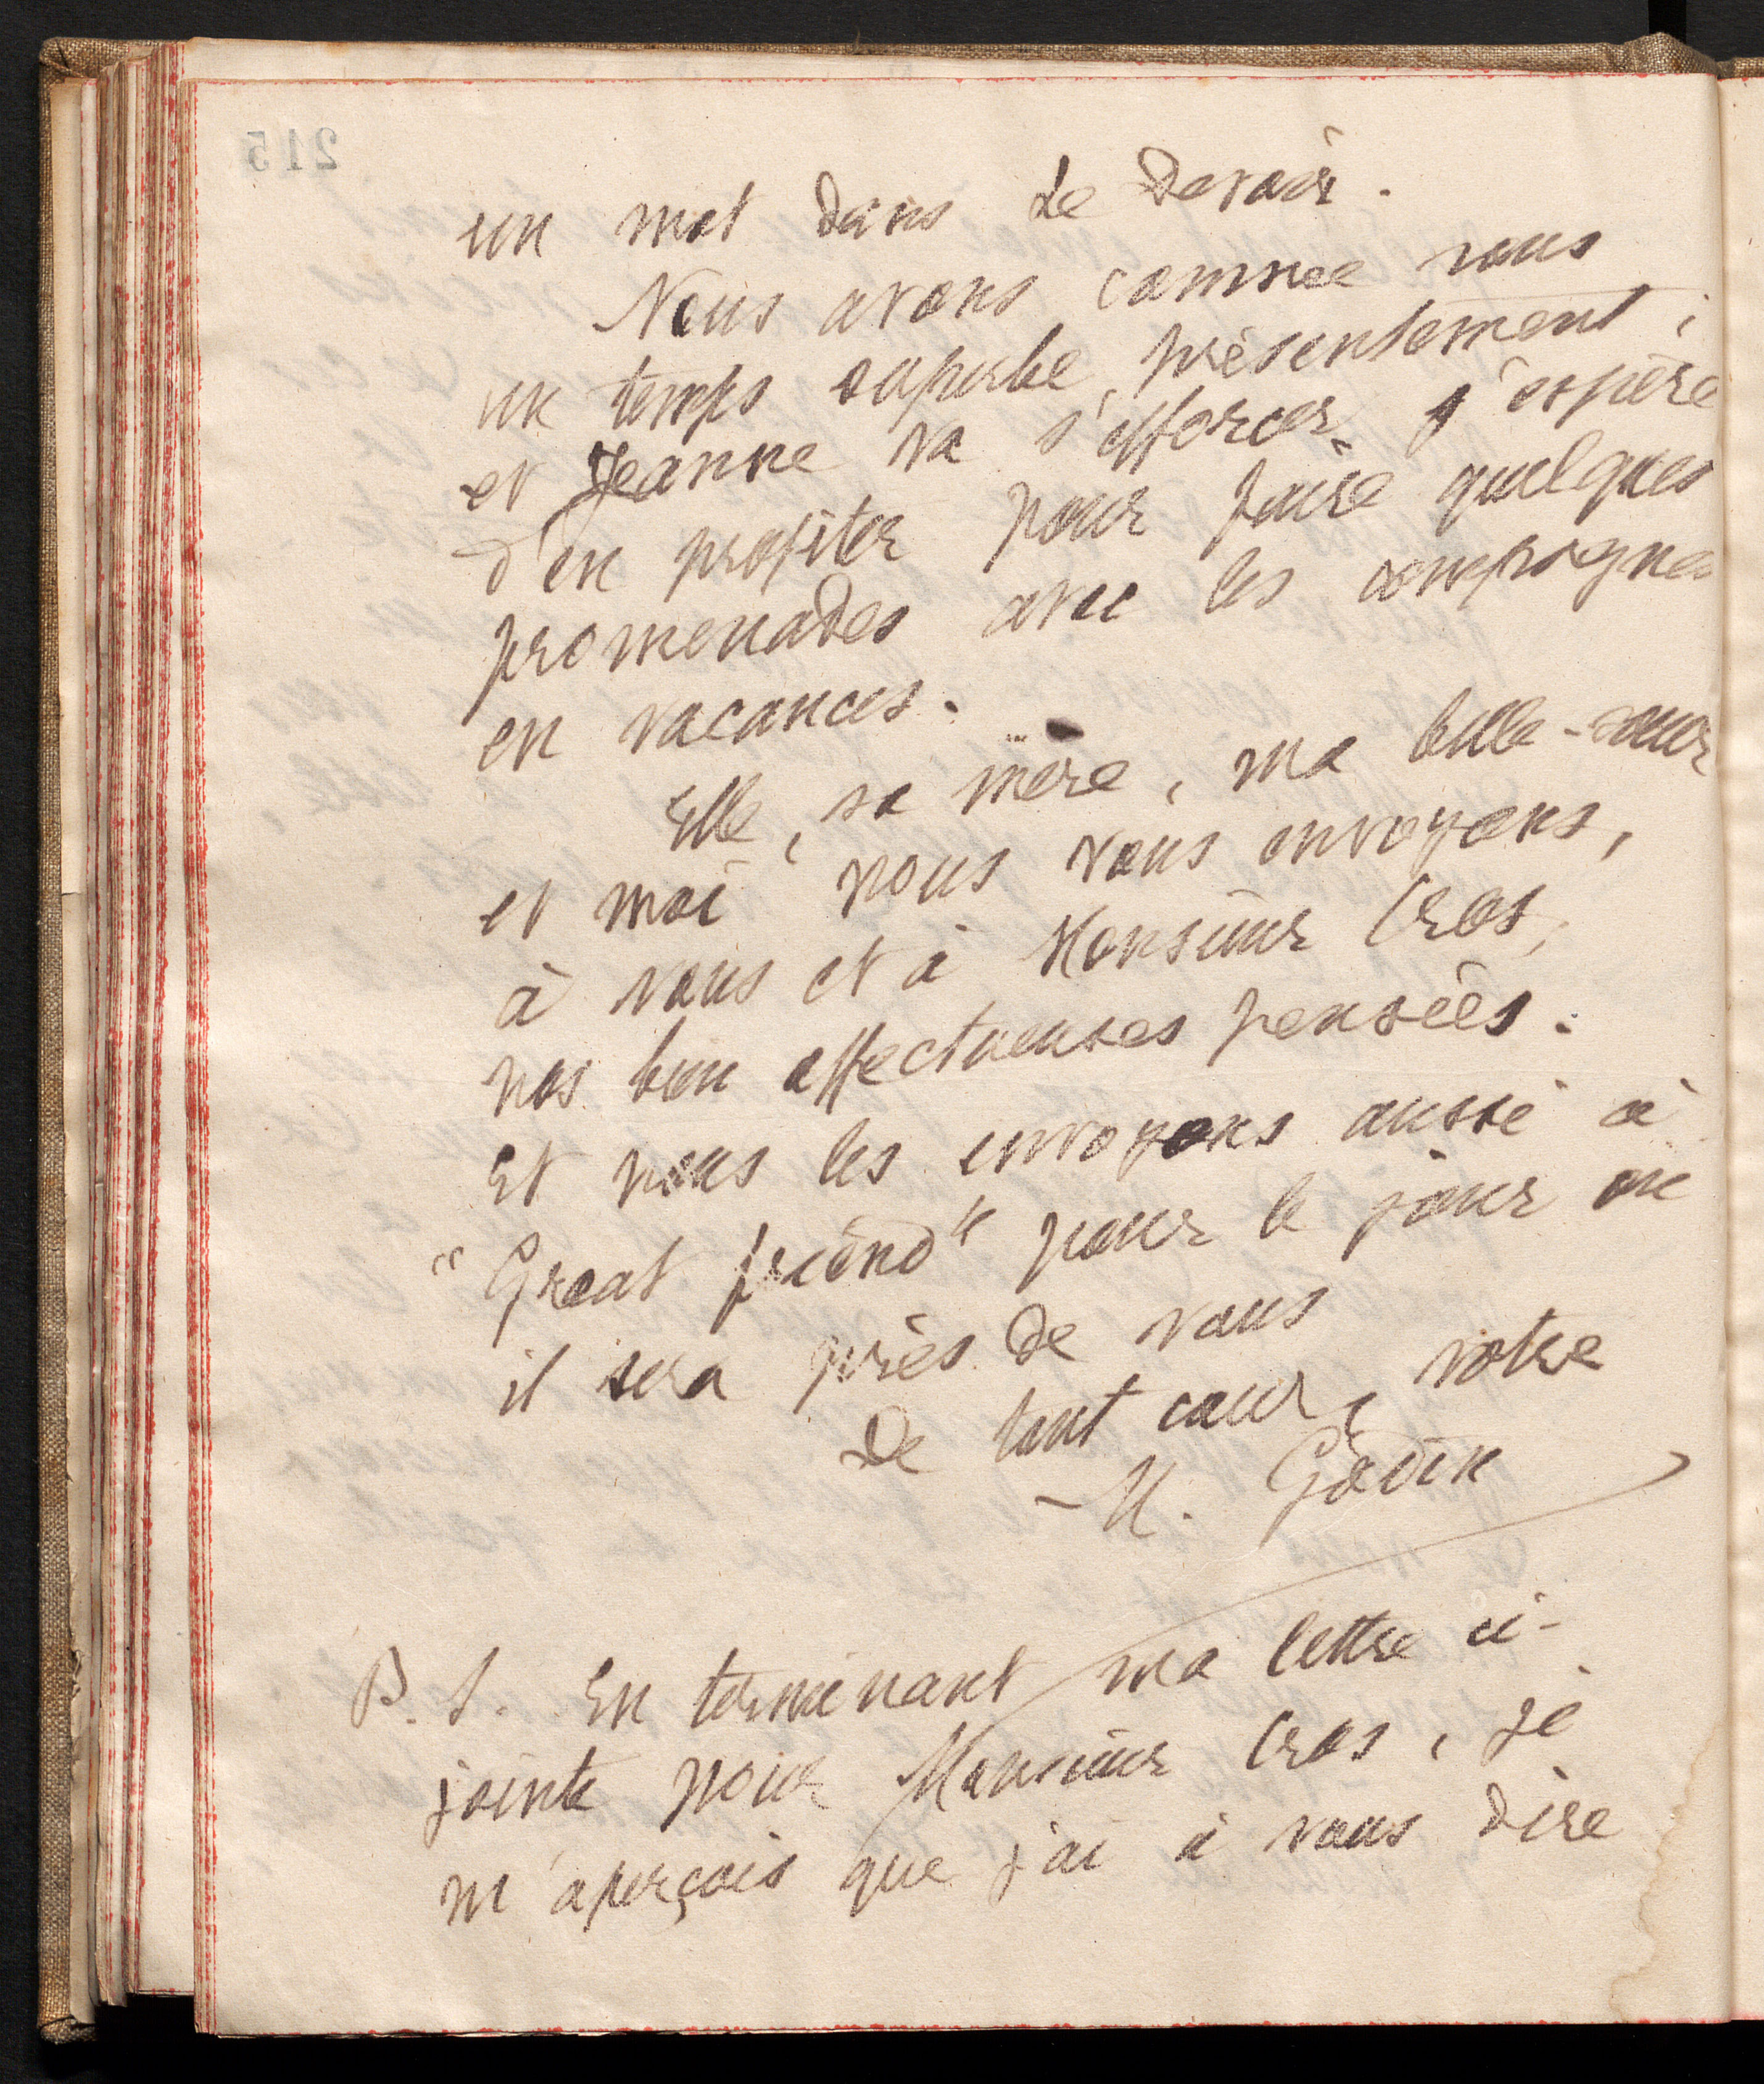 215
un mot dans Le Devoir.
Nous avons comme vous
un temps superbe, présentement ;
et Jeanne va s'efforcer, j'espère
d'en profiter pour faire quelques
promenades avec les compagnes
en vacances.
Elle, sa mère, ma belle-sœur
et moi nous vous envoyons,
à vous et à Monsieur Cros,
nos bien affectueuses pensées.
Et nous les envoyons aussi à
"Great friend" pour le jour où
il sera près de vous
De tout cœur, votre
M. Godin
P. S. En terminant ma lettre ci-
jointe pour Monsieur Cros, je
m'aperçois que j'ai à vous dire